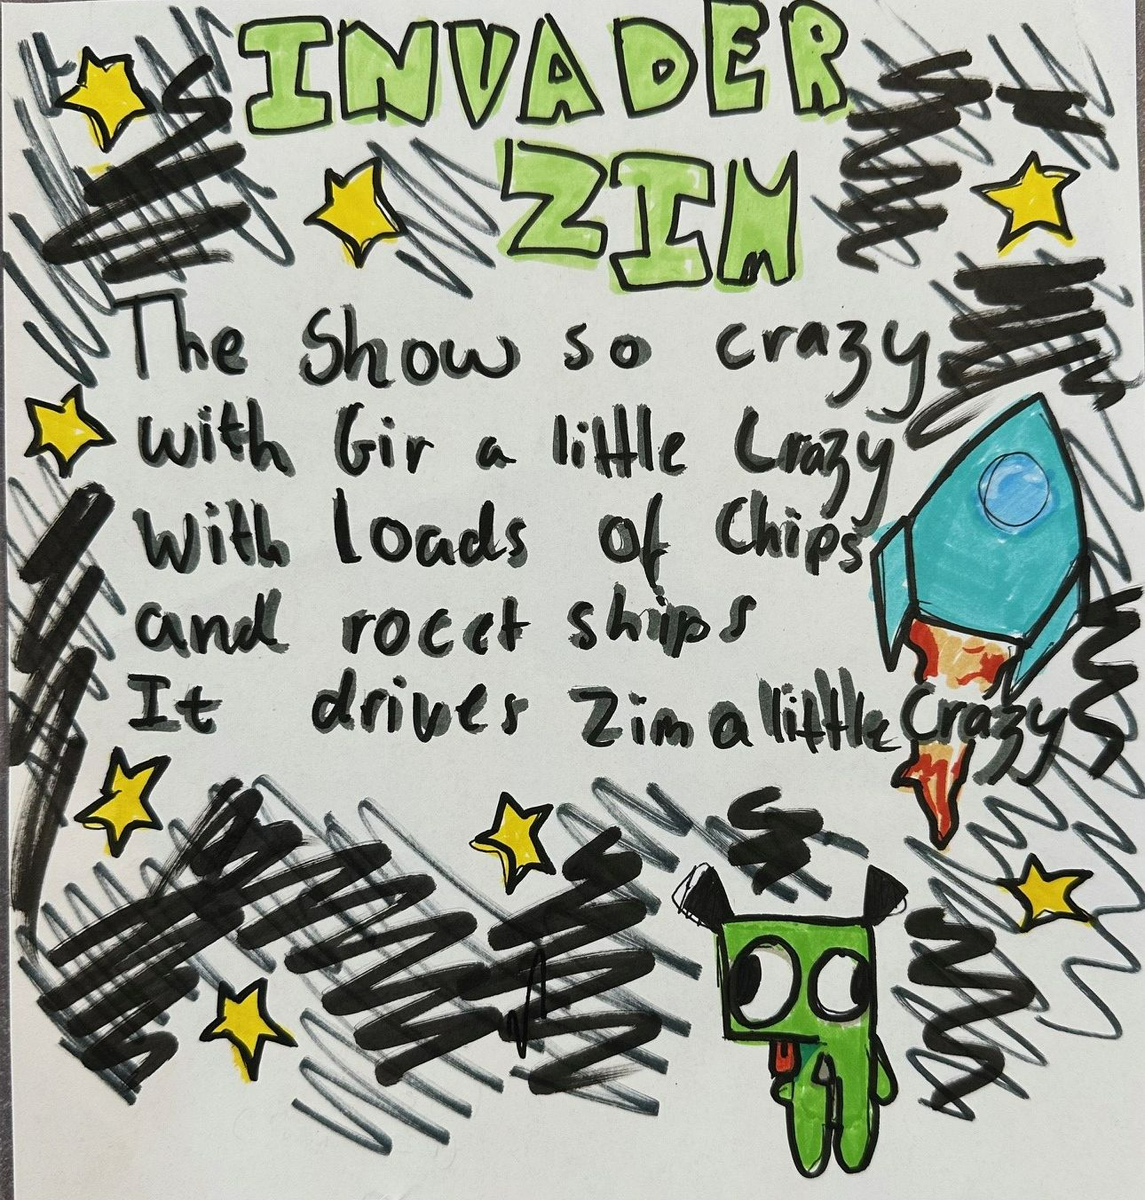 INVADER
ZIM
The Show so crazy
with Gir a little Crazy
With loads of Chips
and rocet ships
It drives Zim a little Crazy